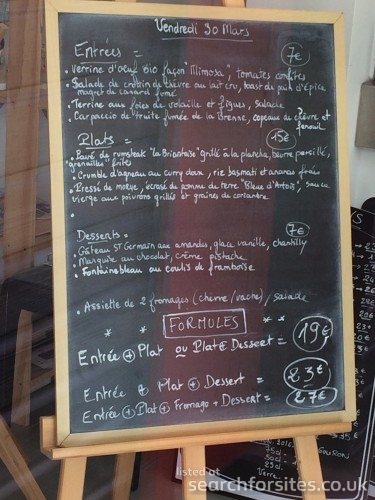 Vendredi 30 Mars
Entrées = 7€
• Verrine d'oeuf Bio façon "Mimosa", tomates confites
• Salade de crottin de chèvre au lait cru, toast de pain d'épice
magret du canard fumé
• Terrine aux foies de volaille et figues, salade
• Carpaccio de truite fumée de la Brenne, copeaux de chèvre et
fenouil
Plats = 15€
• Pavé de rumsteak "la Briantaise" grillé à la planche, beurre persillé,
"grenailles" frites
• Crumble d'agneau au curry doux, riz basmati et ananas frais
• Pressé de morue, écrasé de pomme de terre "Bleue d'Artois", sauce
vierge aux poivrons grillés et graines de coriandre
•
Desserts = 7€
• Gâteau St Germain aux amandes, glace vanille, chantilly
• Marquise au chocolat, crème pistache
• Fontainebleau au coulis de framboise
• Assiette de 2 fromages (chèvre/vache), salade
* * FORMULES * *
Entrée + Plat ou Plat + Dessert = 19€
Entrée + Plat + Dessert = 23€
Entrée + Plat + Fromage + Dessert = 27€
35€
75cl
50cl
25cl
Verre
listed at
searchforsites.co.uk